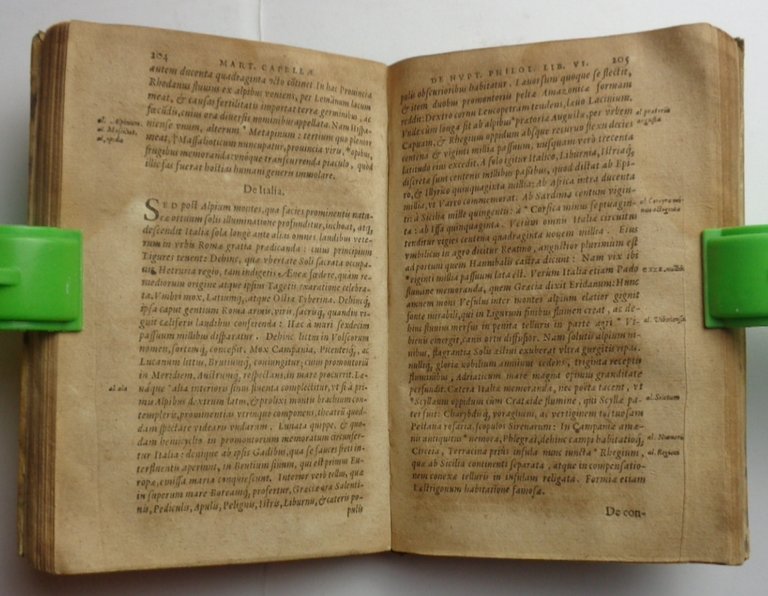 204
MART. CAPELLÆ
autem ducenta quadraginta octo cōtinet. In hac Provincia
Rhodanus fluvius ex alpibus veniens, per Lemānum lacum
meat, & causas fertilitatis importat terra germinibus, ac
fœcūdis, enim ora diversis nominibus appellata. Nam Hispa-
niense vnum, alterum * Metapinum: tertium quo plenior
meat, * Massalioticum nuncupatur, provincia viris, * opibus,
frugibus memoranda: vnóque transcurrenda piaculo, quòd
illic fas fuerat hostias humani generis immolare.
al. Massilioti.
al. opida
De Italia.
SED post Alpium montes, qua facies prominentū natu-
ræ ortuum solis illuminatione profunditur, inchoat, atq;
descendit Italia sola longè ante alias omnes laudibus vete-
rum in vrbis Romæ gratia prædicanda: cuius principium
Ligures tenent: Dehinc, qua vbertate Soli sacrata occupa-
vit Hetruria regio, tam indigetis Æneæ fœdere, quàm re-
mediorum origine atque ipsius Tagetis exaratione celebra-
ta. Vmbri mox, Latiumq́, atque Ostia Tyberina. Dehincq́,
ipsa caput gentium Roma armis, viris, sacrisq́, quandiu vi-
guit cæliferis laudibus conferenda: Hæc à mari sexdecim
passuum millibus disparatur. Dehinc littus in Volscorum
nomen, fortemq́, concessit. Mox Campania, Picentesq́, ac
Lucanum littus, Brutiumq́, coniungitur: cuius promontoria
in Meridiem, Austrumq́, respectans, in mare procurrit. Le-
náque * alta interioris sinus iuventa complectitur, vt si à pri-
mis Alpibus dextrum latus, & prolixi montis brachium con-
templeris, prominentias vtrinque componens, theatrū quod-
dam spectare videaris vndarum. Lunata quippe, & quo-
dam hemicyclio in promontorium memoratum circumfer-
tur Italia: denique ab ipsis Gadibus, qua se fauces freti in-
terfluentis aperiunt, in Brutium sinum, qui est primus Eu-
ropæ, emissa maria conquiescunt. Interior verò tellus, quæ
in superum mare Boreamq́, profertur, Græcia ora Salenti-
nis, Pediculis, Apulis, Pelignis, Istris, Liburnis, & cæteris po-
pulis
al. ala
DE NVPT. PHILOL. LIB. VI.
205
pulis obscurioribus habitatur. Lavorsum quoque se flectit,
& item duobus promontoriis peltæ Amazonicæ formam
reddit: Dextro cornu Leucopetram tendens, lævo Lacinium.
Vnde cum longa sit ab alpinis * prætoria Augusta, per vrbem
Capuam, & Rhegium oppidum absque recurso flexu decies
centena & viginti millia passuum, nusquam verò trecenta
latitudo eius excedit. A solo igitur Italico, Liburnia, Histriaq́,
discreta sunt centenis millibus passibus, quod distat ab Epi-
ro, & Illyrico quinquaginta millia: Ab Africa intra ducenta
millia, vt Varro commemorat. Ab Sardinia centum vigin-
ti: à Sicilia mille quingenti: à * Corsica minus septuagin-
ta: ab Issa quinquaginta. Verùm omnis Italiæ circuitus
tenditur vigies centena quadraginta novem millia. Eius
vmbilicus in agro dicitur Reatino, angustior plurimùm est
ad portum quem Hannibalis castra dicunt: Nam vix ibi
* viginti millia passuum lata est. Verùm Italia etiam Pado
flumine memoranda, quem Græcia dixit Eridanum: Hunc
amnem mons Vesulus inter montes alpium elatior gignit
fonte mirabili, qui in Ligurum finibus flumen creat, ac de-
hinc fluvius mersus in penita telluris in parte agri * Vi-
biensis emergit, canis ortu diffusior. Nam solutis alpium ni-
vibus, flagrantia Solis æstivi exuberat vltra gurgitis ripas,
nullisq́, gloria nobilium amnium cedens, triginta receptis
fluminibus, Adriaticum mare magna opimus granditate
perfundit. Cætera Italiæ memoranda, nec poëta tacent, vt
* Scyllæum oppidum cum Cratæide flumine, qui Scyllæ pa-
ter fuit: Charybdisq́, voraginem, ac vertiginem tortuosam
Pestana rosaria, scopulos Sirenarum: In Campania amœ-
nis antiquitus * nemora, Phlegrai, dehinc campi habitatioq́,
Circeia, Terracina prius insula nunc iuncta * Rhegium,
que ab Sicilia continenti separata, atque in compensatio-
nem connexæ telluris in insulam religata. Formiæ etiam
Læstrigonum habitatione famosæ.
De con-
al. prætoria
augusta
al. Vibianensi.
al. Numerū
al. Regium